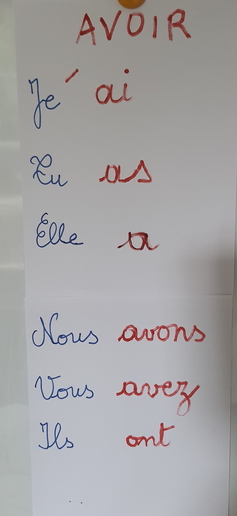 AVOIR
Je' ai
Tu as
Elle a
Nous avons
Vous avez
Ils ont